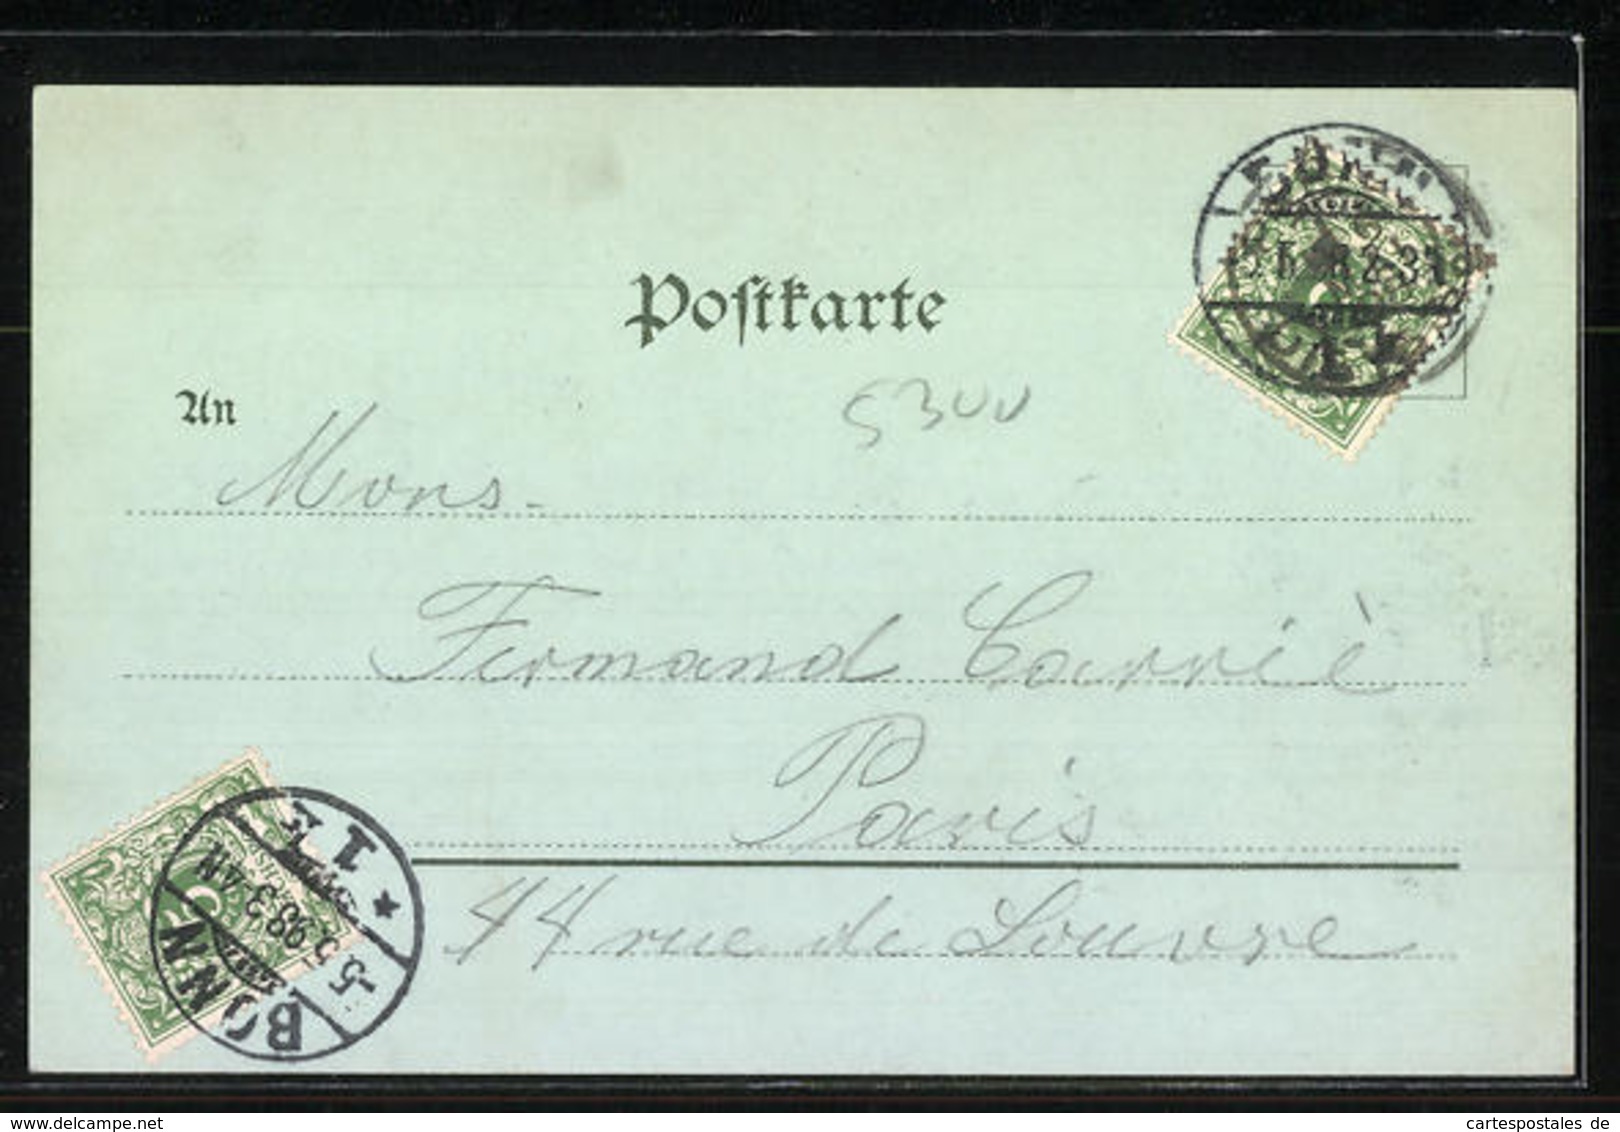 Postkarte
An
5300
Mons.
Fernand Carriè
Paris
44 rue de Louvre
BONN
5.5.98.3-4N.
* 1 E
5
www.cartespostales.de